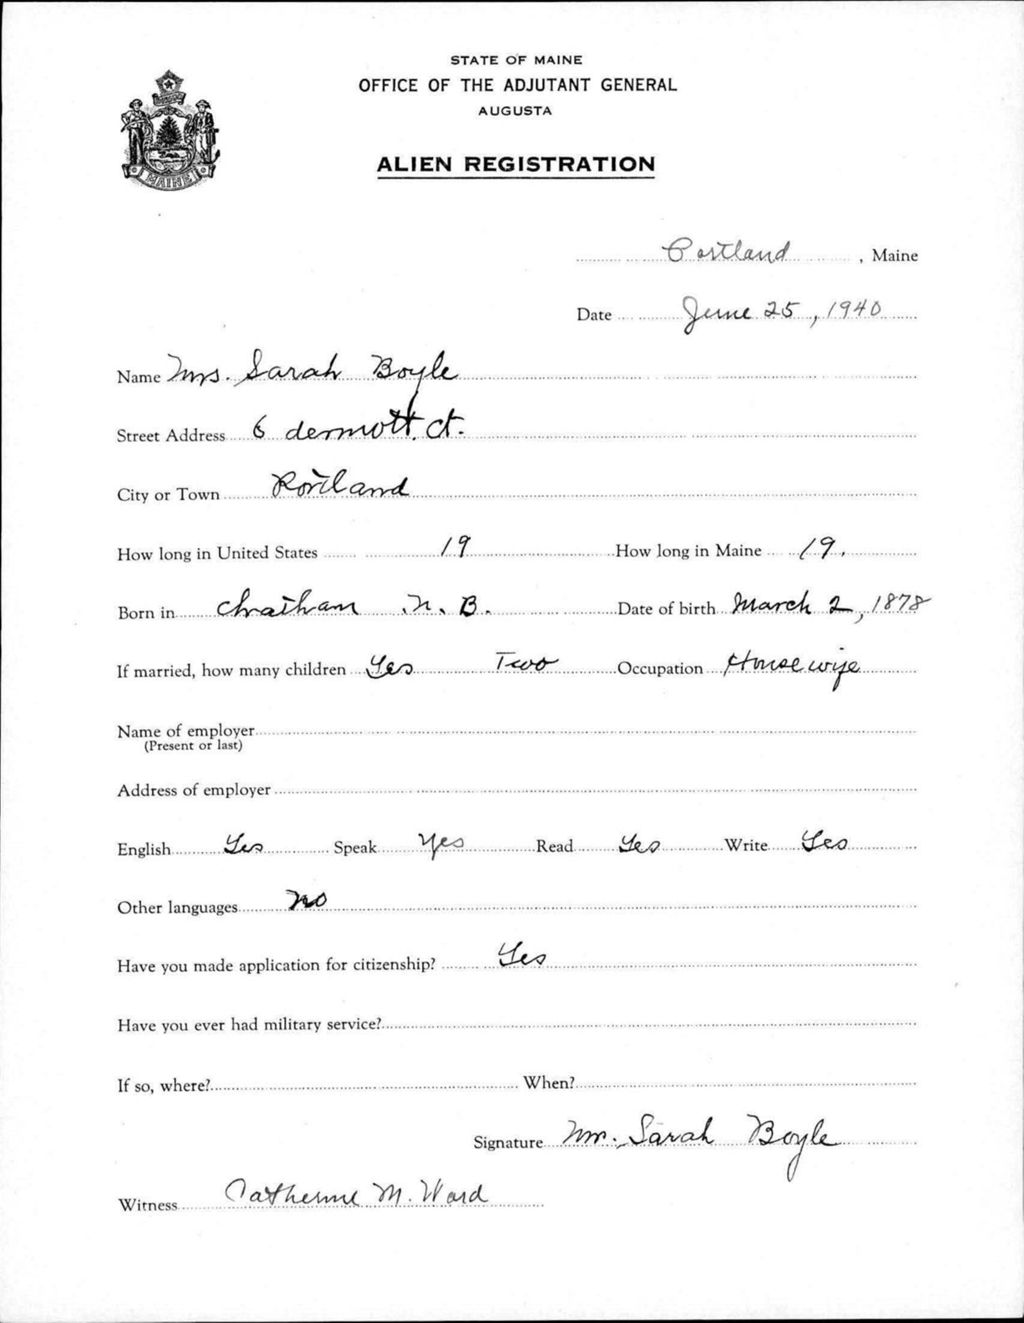 STATE OF MAINE
OFFICE OF THE ADJUTANT GENERAL
AUGUSTA
ALIEN REGISTRATION
MAINE
Portland, Maine
Date June 25, 1940
Name Mrs. Sarah Boyle
Street Address 6 dermott. Ct.
City or Town Portland
How long in United States 19 How long in Maine 19.
Born in Chatham N. B. Date of birth March 2, 1878
If married, how many children Yes Two Occupation Housewife
Name of employer
(Present or last)
Address of employer
English Yes Speak Yes Read Yes Write Yes
Other languages no
Have you made application for citizenship? Yes
Have you ever had military service?
If so, where? When?
Signature Mrs. Sarah Boyle
Witness Catherine M. Ward